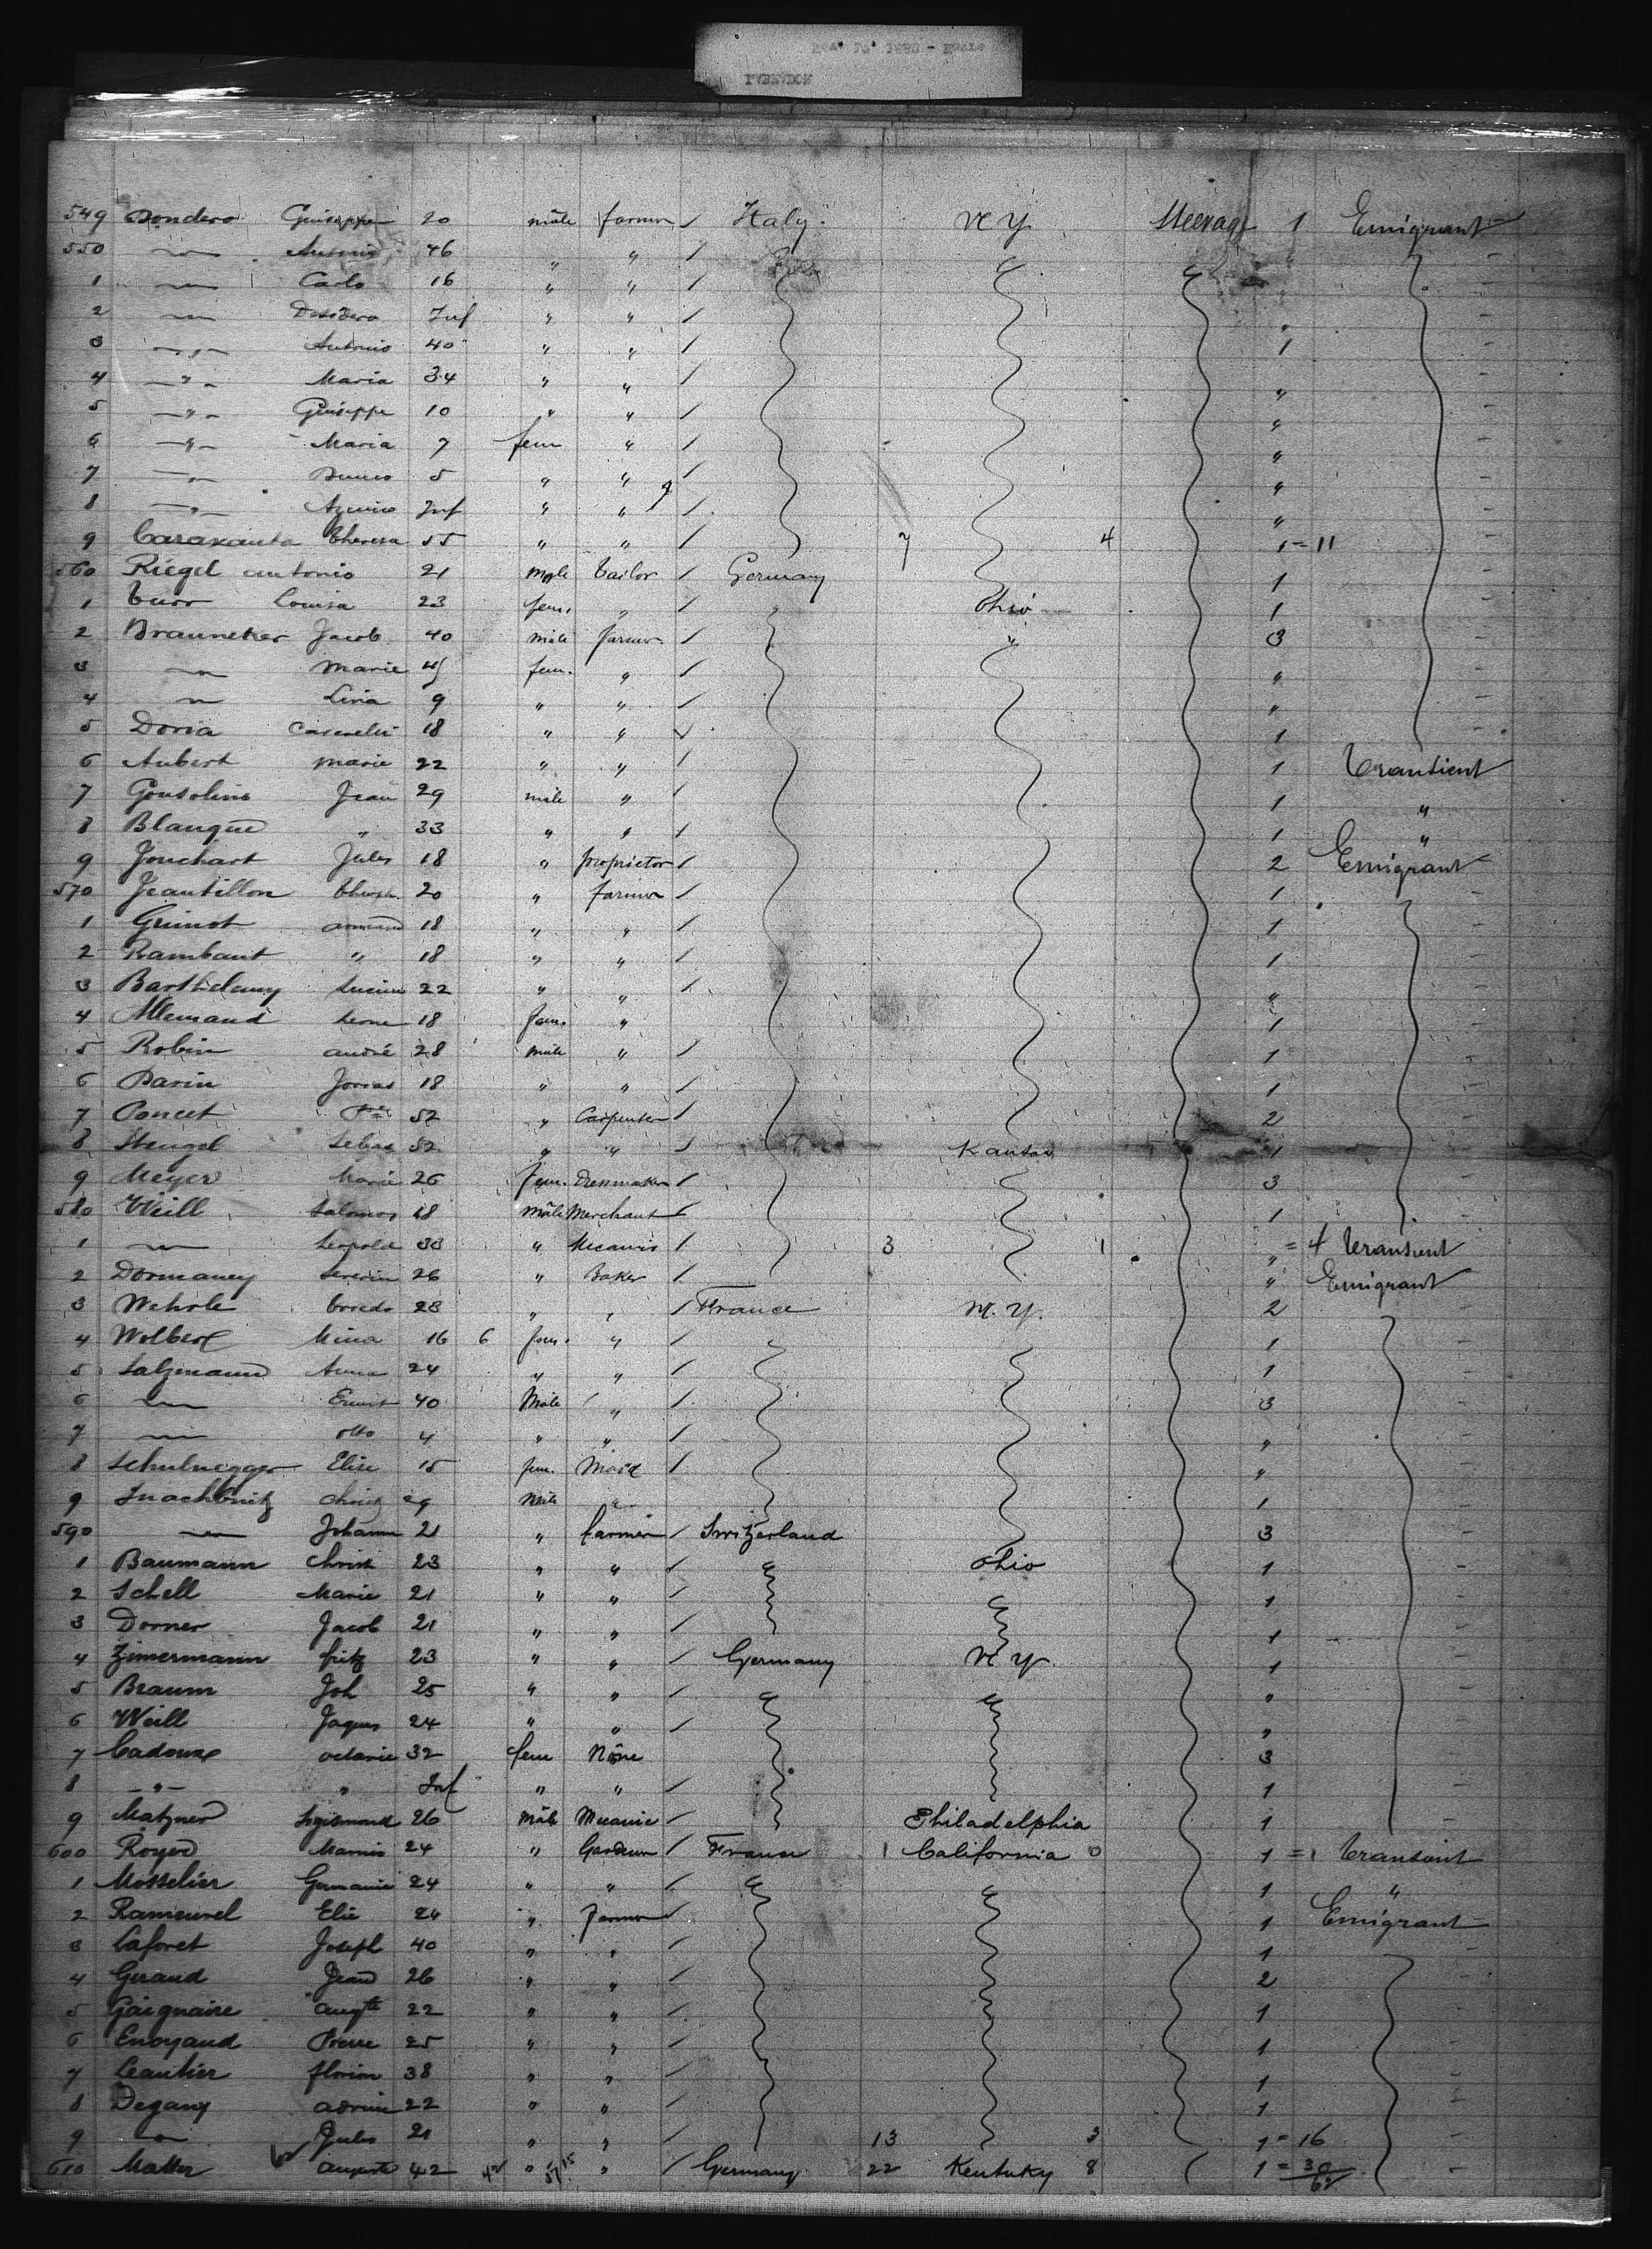 549 Dondero Giuseppe 20 male farmer / Italy N Y Steerage 1 Emigrant
550 " Antonio 46 " " /
1 " Carlo 16 " " /
2 " Desidero Inf " " / "
3 " Antonio 40 " " / 1
4 " Maria 34 " " / "
5 " Giuseppe 10 " " / "
6 " Maria 7 fem " / "
7 " 5 " " / "
8 " Inf " " / "
9 Theresa 55 " " / 7 4 1 = 11
560 Riegel antonio 21 male tailor / Germany 1
1 Louisa 23 fem. " / Ohio 1
2 Jacob 40 male farmer / " 3
3 " Marie fem. " / "
4 " Lina 9 " " / "
5 Doria 18 " " / 1
6 Aubert Marie 22 " " / 1 Transient
7 Jean 29 male " / 1 "
8 Blanque " 33 " " / 1 "
9 Jouchart Jules 18 " proprietor / 2 Emigrant
570 Jeantillon 20 " farmer / 1
1 Guinot armand 18 " " / 1
2 Rambaut " 18 " " / 1
3 Barthelemy Lucien 22 " " / "
4 Allemand Leone 18 fem. " 1
5 Robin andré 28 male " / 1
6 18 " " / 1
7 Poncet 52 " Carpenter / 2
8 Stengel 52 " " / Kansas 1
9 Meyer Marie 26 fem. Dressmaker / 3
580 Weill Salomon 18 male Merchant / 1
1 " Leopold 33 " Mecanic / 3 1 " = 4 Transient
2 Dormaney Severin 26 " Baker / " Emigrant
3 Wehrle 28 " " / France N. Y. 2
4 Mina 16 6 fem. " / 1
5 Salzmann Anna 24 " " / 1
6 " Ernst 40 Male " / 3
7 " otto 4 " " / "
8 Elise 15 fem. Maid / "
9 29 Male " 1
590 " Johann 21 " farmer / Switzerland 3
1 Baumann Christ 23 " " / Ohio 1
2 Schell Marie 21 " " / 1
3 Dorner Jacob 21 " " / 1
4 Zimermann fritz 23 " " / Germany N Y 1
5 Braum Joh 25 " " / "
6 Weill Jaques 24 " " / "
7 Cadoux octavie 32 fem None 3
8 " " Inf " " / 1
9 Matzner Sigismond 26 male Mecanic / Philadelphia 1
600 Royer Marius 24 " Gardener / France 1 California 0 1 = 1 Transient
1 Mosselier Germanie 24 " " / 1 "
2 Elie 24 " farmer / 1 Emigrant
3 Laforet Joseph 40 " " / 1
4 Geraud Jean 26 " " / 2
5 Gaignaire augte 22 " " / 1
6 Enoyaud Pierre 25 " " / 1
7 Leautier florian 38 " " / 1
8 Degany adrien 22 " " / 1
9 " Jules 21 " " / 13 3 1 = 16
610 Matter auguste 42 " " / Germany 22 Kentuky 8 1 = 30
62